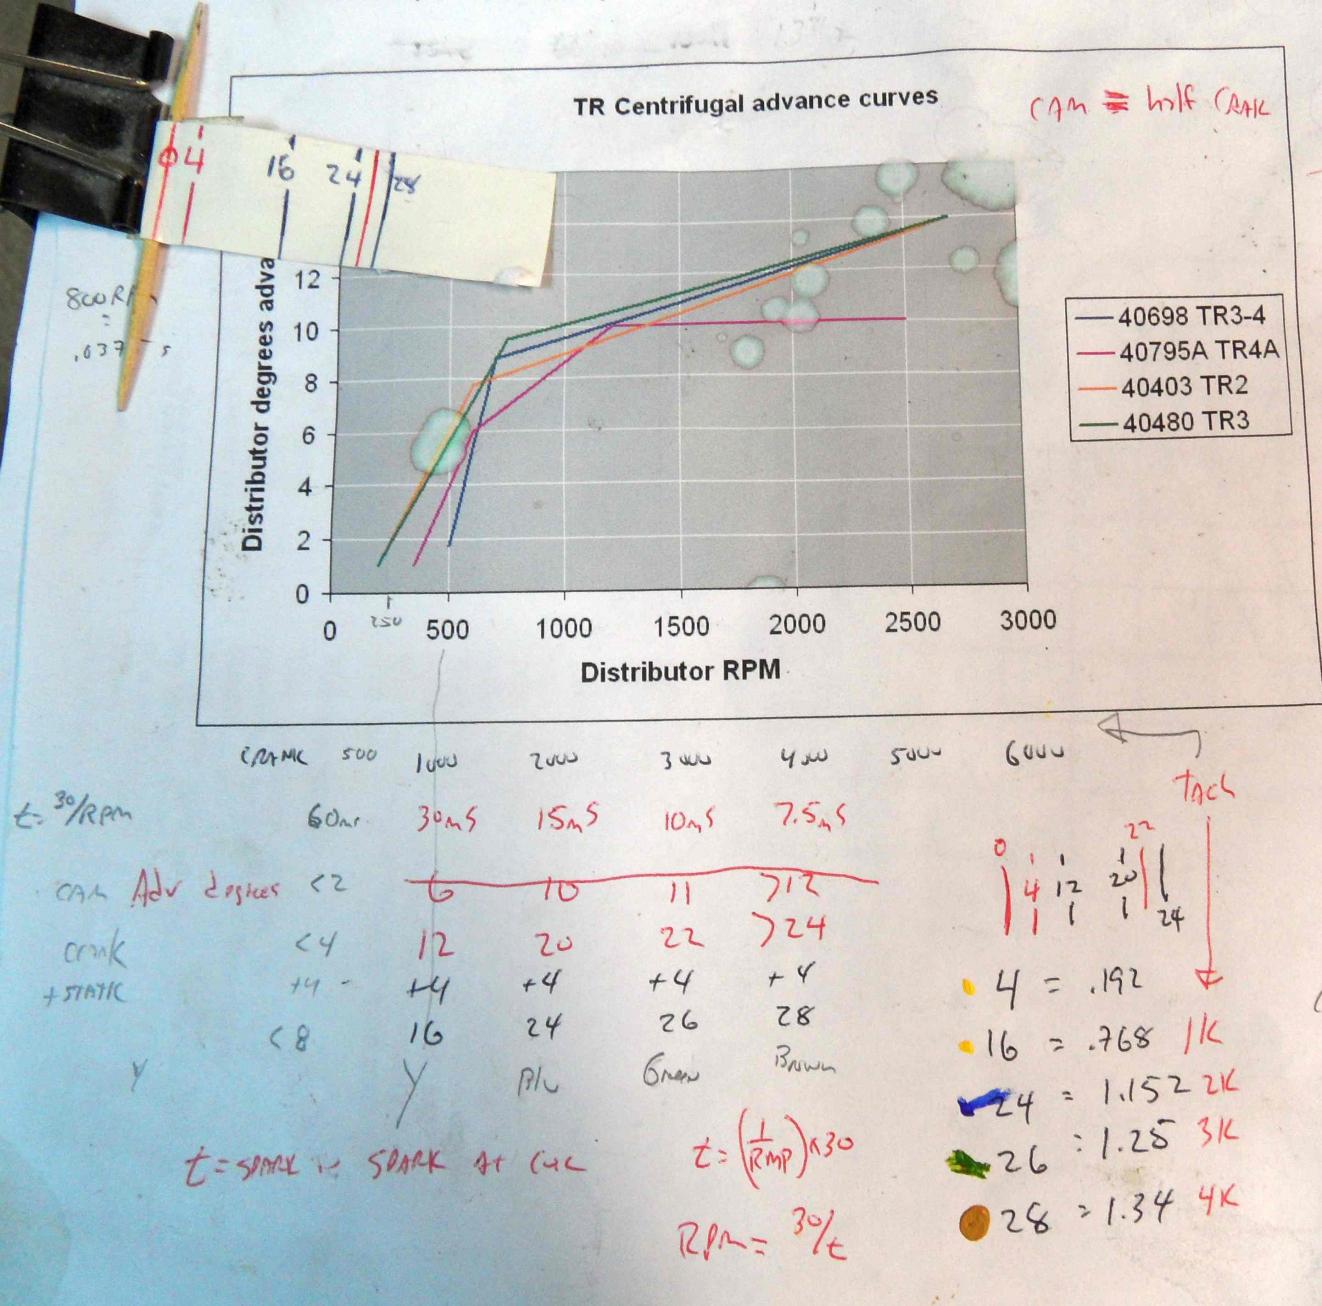 TR Centrifugal advance curves
CAM ≡ half CRAK
0 4 16 24 28
800 RP
=
.037 s
Distributor degrees adva
12
10
8
6
4
2
0
40698 TR3-4
40795A TR4A
40403 TR2
40480 TR3
250
0 500 1000 1500 2000 2500 3000
Distributor RPM
CRANK 500 1000 2000 3000 4000 5000 6000
TACH
t= 30/RPM 60ms 30mS 15mS 10mS 7.5mS
0 4 12 20 22 24
CAM Adv degrees <2 6 10 11 >12
Crank <4 12 20 22 >24
+STATIC +4 +4 +4 +4 +4
<8 16 24 26 28
Y Y Blu Green Brown
4 = .192
16 = .768 1K
24 = 1.152 2K
26 = 1.25 3K
28 = 1.34 4K
t= SPARK SPARK At
t= (1/RMP) x30
RPM= 30/t